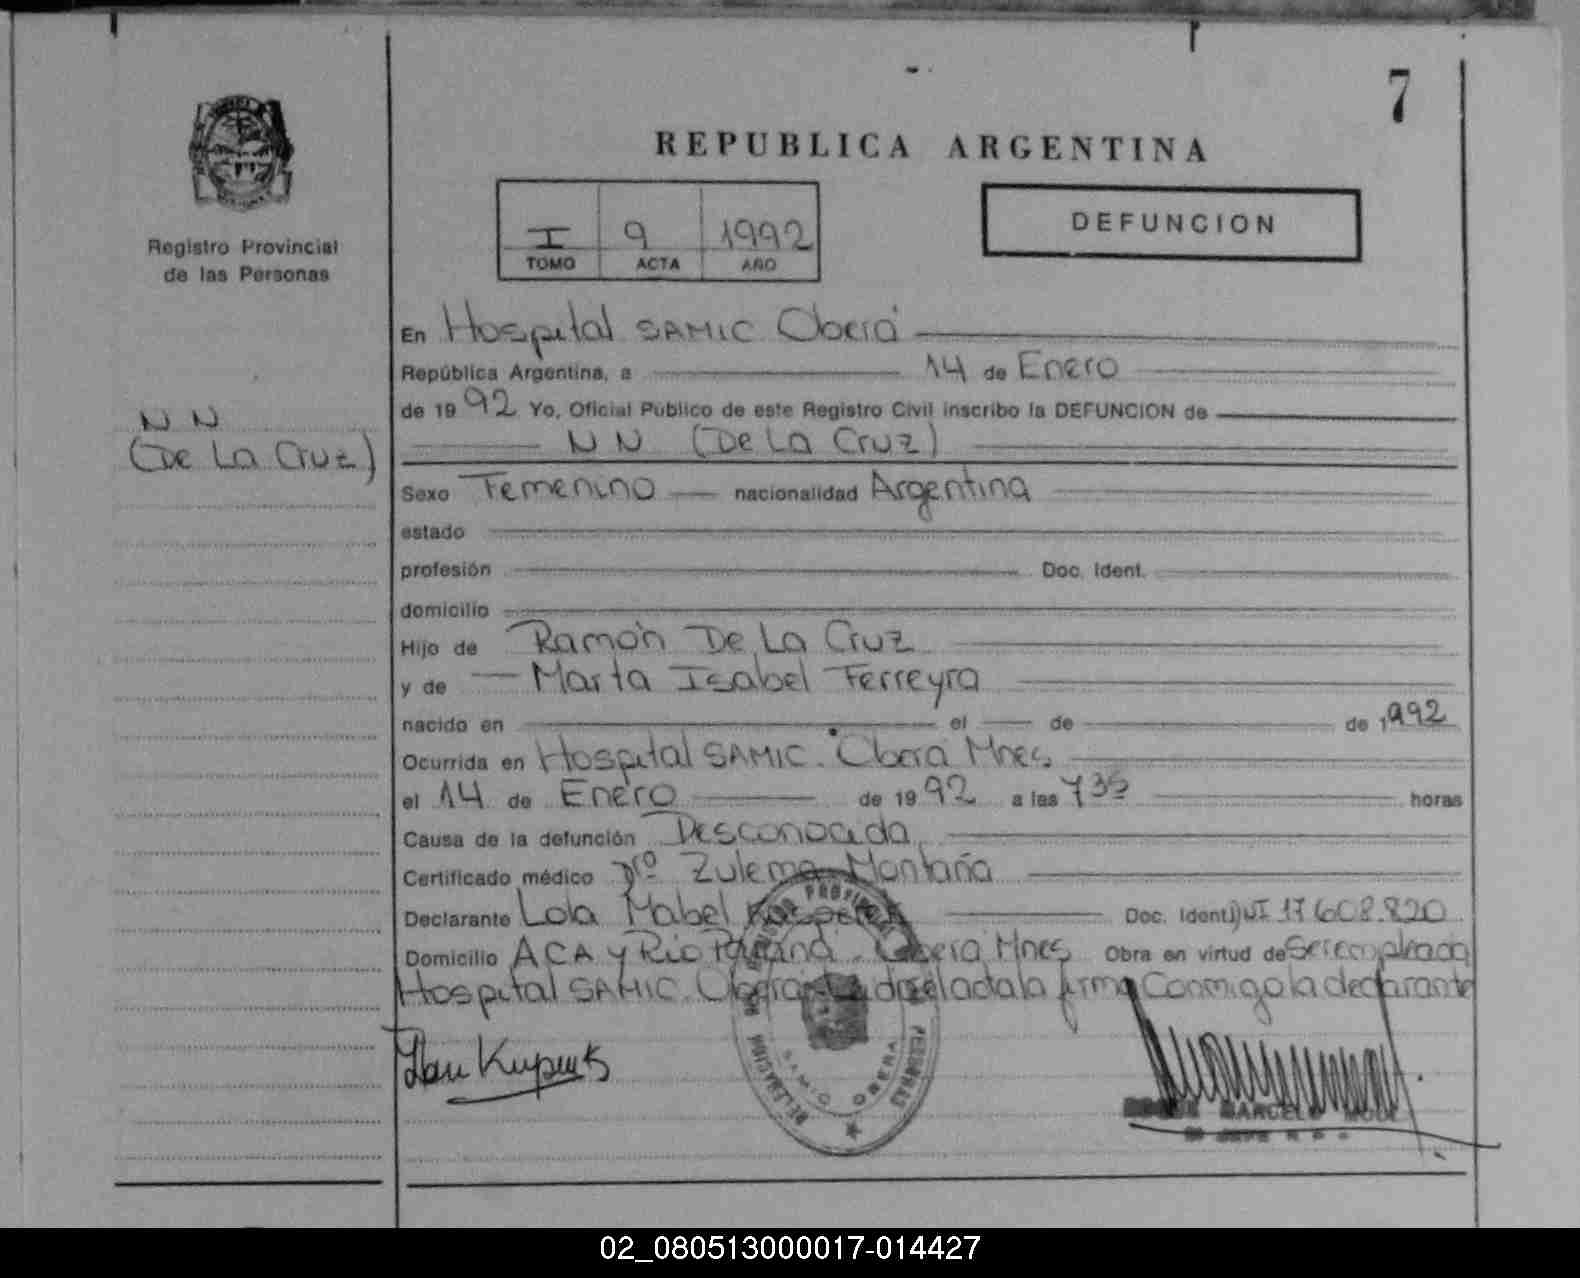 7
REPUBLICA ARGENTINA
Registro Provincial
de las Personas
I 9 1992
TOMO ACTA AÑO
DEFUNCION
N N
(De La Cruz)
En Hospital SAMIC. Oberá
República Argentina, a 14 de Enero
de 1992 Yo, Oficial Público de este Registro Civil inscribo la DEFUNCION de
N N (De La Cruz)
Sexo Femenino nacionalidad Argentina
estado
profesión Doc. Ident.
domicilio
Hijo de Ramón De La Cruz
y de Marta Isabel Ferreyra
nacido en el de de 1992
Ocurrida en Hospital SAMIC. Oberá Mnes.
el 14 de Enero de 1992 a las 7 35 horas
Causa de la defunción Desconocida
Certificado médico Dra Zulema Montaña
Declarante Lola Mabel Doc. Ident. DNI 17.608.820
Domicilio ACA y Río Paraná. Oberá Mnes Obra en virtud de Ser empleada
Hospital SAMIC. Oberá. el acta la firma Conmigo la declarante
DELEGACION REGISTRO PROVINCIAL PERSONAS
SAMIC OBERA
MARCELO
02_080513000017-014427